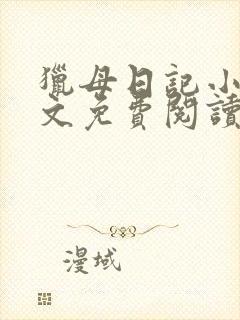 獵母日記小
文免費閱讀
漫域